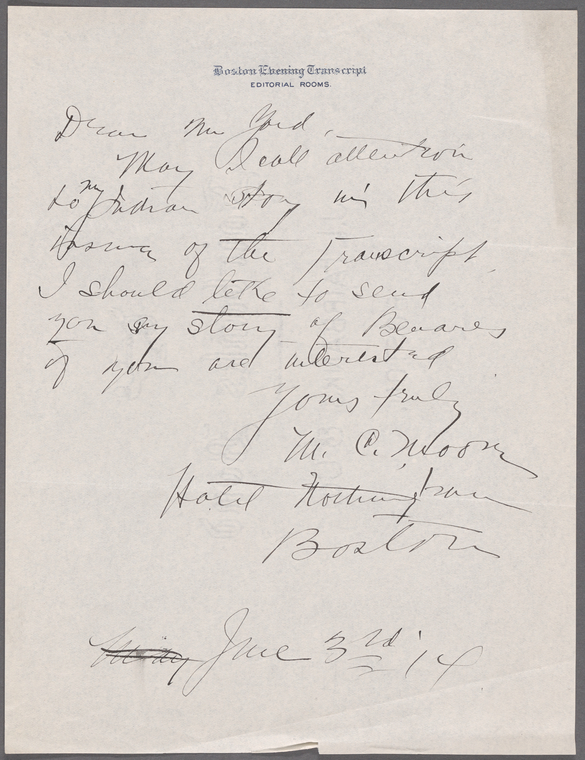 Boston Evening Transcript
EDITORIAL ROOMS.
Dear Mr
May I call attention
to my Indian story in this
of the Transcript,
I should like to send
you my story of Benares
if you are interested
Yours truly
M. C. Moore
Hotel Nottingham
Boston
June 3rd 14